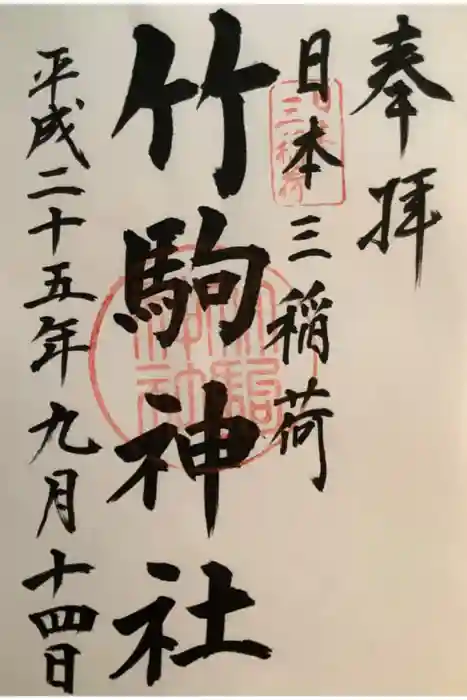 奉拝
日本三稲荷
三稲荷
竹駒神社
竹駒神社
平成二十五年九月十四日